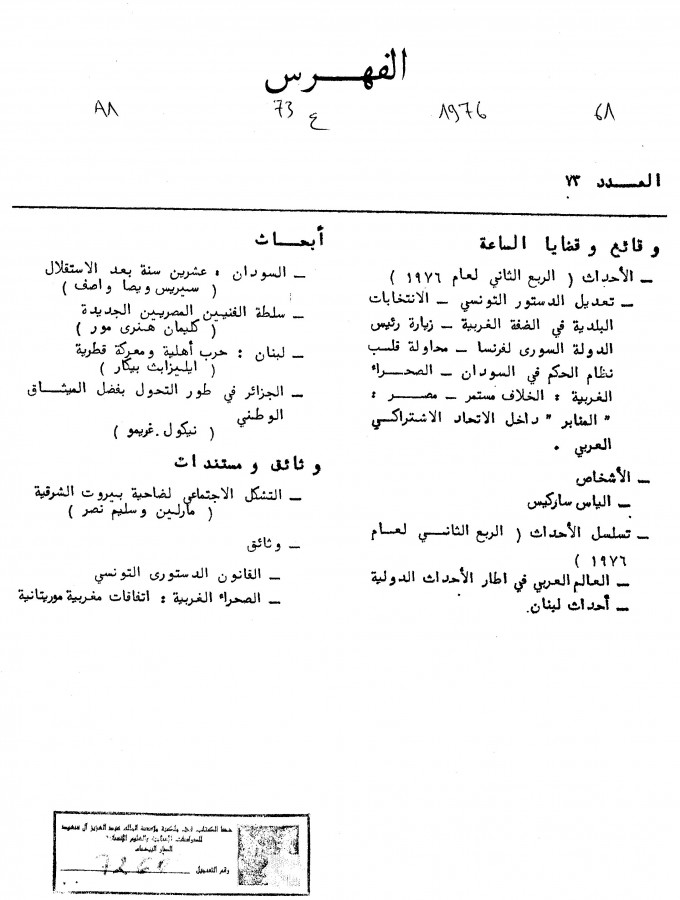 الفهرس
61 1976 ع 73 A1
العدد ٧٣
وقائع وقضايا الساعة
ـ الأحداث ( الربع الثاني لعام ١٩٧٦ )
ـ تعديل الدستور التونسي ـ الانتخابات
البلدية في الضفة الغربية ـ زيارة رئيس
الدولة السورى لفرنسا ـ محاولة قلب
نظام الحكم في السودان ـ الصحراء
الغربية : الخلاف مستمر ـ مصر :
" المنابر " داخل الاتحاد الاشتراكي
العربي .
ـ الأشخاص
ـ الياس ساركيس
ـ تسلسل الأحداث ( الربع الثاني لعام
١٩٧٦ )
ـ العالم العربي في اطار الأحداث الدولية
ـ أحداث لبنان.
أبحاث
ـ السودان : عشرين سنة بعد الاستقلال
( سيريس ويصا واصف )
ـ سلطة الفنيين المصريين الجديدة
( كليمان هنرى مور )
ـ لبنان : حرب أهلية ومعركة قطرية
( ايليزابث بيكار )
ـ الجزائر في طور التحول بفضل الميثاق
الوطني
( نيكول غريمو )
وثائق ومستندات
ـ التشكل الاجتماعي لضاحية بيروت الشرقية
( مارلين وسليم نصر )
ـ وثائق
ـ القانون الدستورى التونسي
ـ الصحراء الغربية : اتفاقات مغربية موريتانية
هذا الكتاب في مكتبة مؤسسة الملك عبد العزيز آل سعود
للدراسات الإسلامية والعلوم الإنسانية
الدار البيضاء
رقم التسجيل